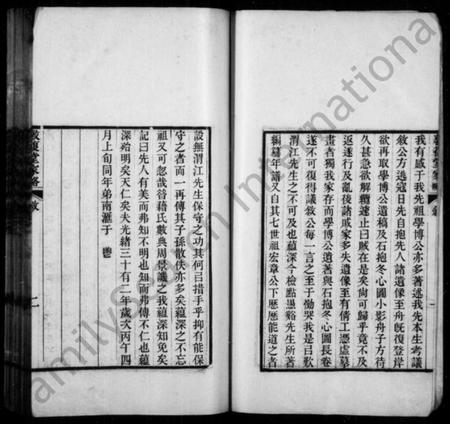 我有感于我先祖學博公亦多著述我先本生考議
敘公方遘寇日先自抱先人諸遺像至舟旣復登岸
欲再取學博公遺稿及石抱冬心圖小影舟子方待
久甚急欲解纜遽止曰賊在是矣尙可歸乎竟不及
返遂行及亂後諸戚家多失遺像至有倩工憑虛墓
畫者獨我家存而學博公遺著與石抱冬心圖長卷
遂不可復得議敘公每一言之至于慟哭我是曰歎
渭江先生之不可及也蘊深今檢點墨谿先生所著
編纂年譜又自其七世祖宏章公下歷歷能道之者
設無渭江先生保守之功其何㠯措手乎抑有能保
守之者而一再傳其子孫散佚亦多矣蘊深之不忘
祖又可忽哉昔籍氏數典周景譏之我蘊深知免矣
記曰先人有美而弗知不明也知而弗傳不仁也蘊
深殆明矣夫仁矣夫光緒三十有二年歲次丙午四
月上旬同年弟南滙于鬯